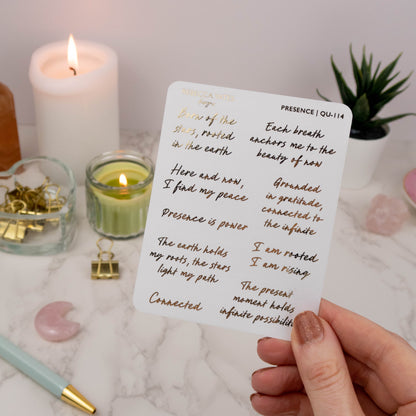 PRESENCE | QU-114
Born of the
stars, rooted
in the earth
Each breath
anchors me to the
beauty of now
Here and now,
I find my peace
Grounded
in gratitude,
connected to
the infinite
Presence is power
The earth holds
my roots, the stars
light my path
I am rooted
I am rising
Connected
The present
moment holds
infinite possibilities